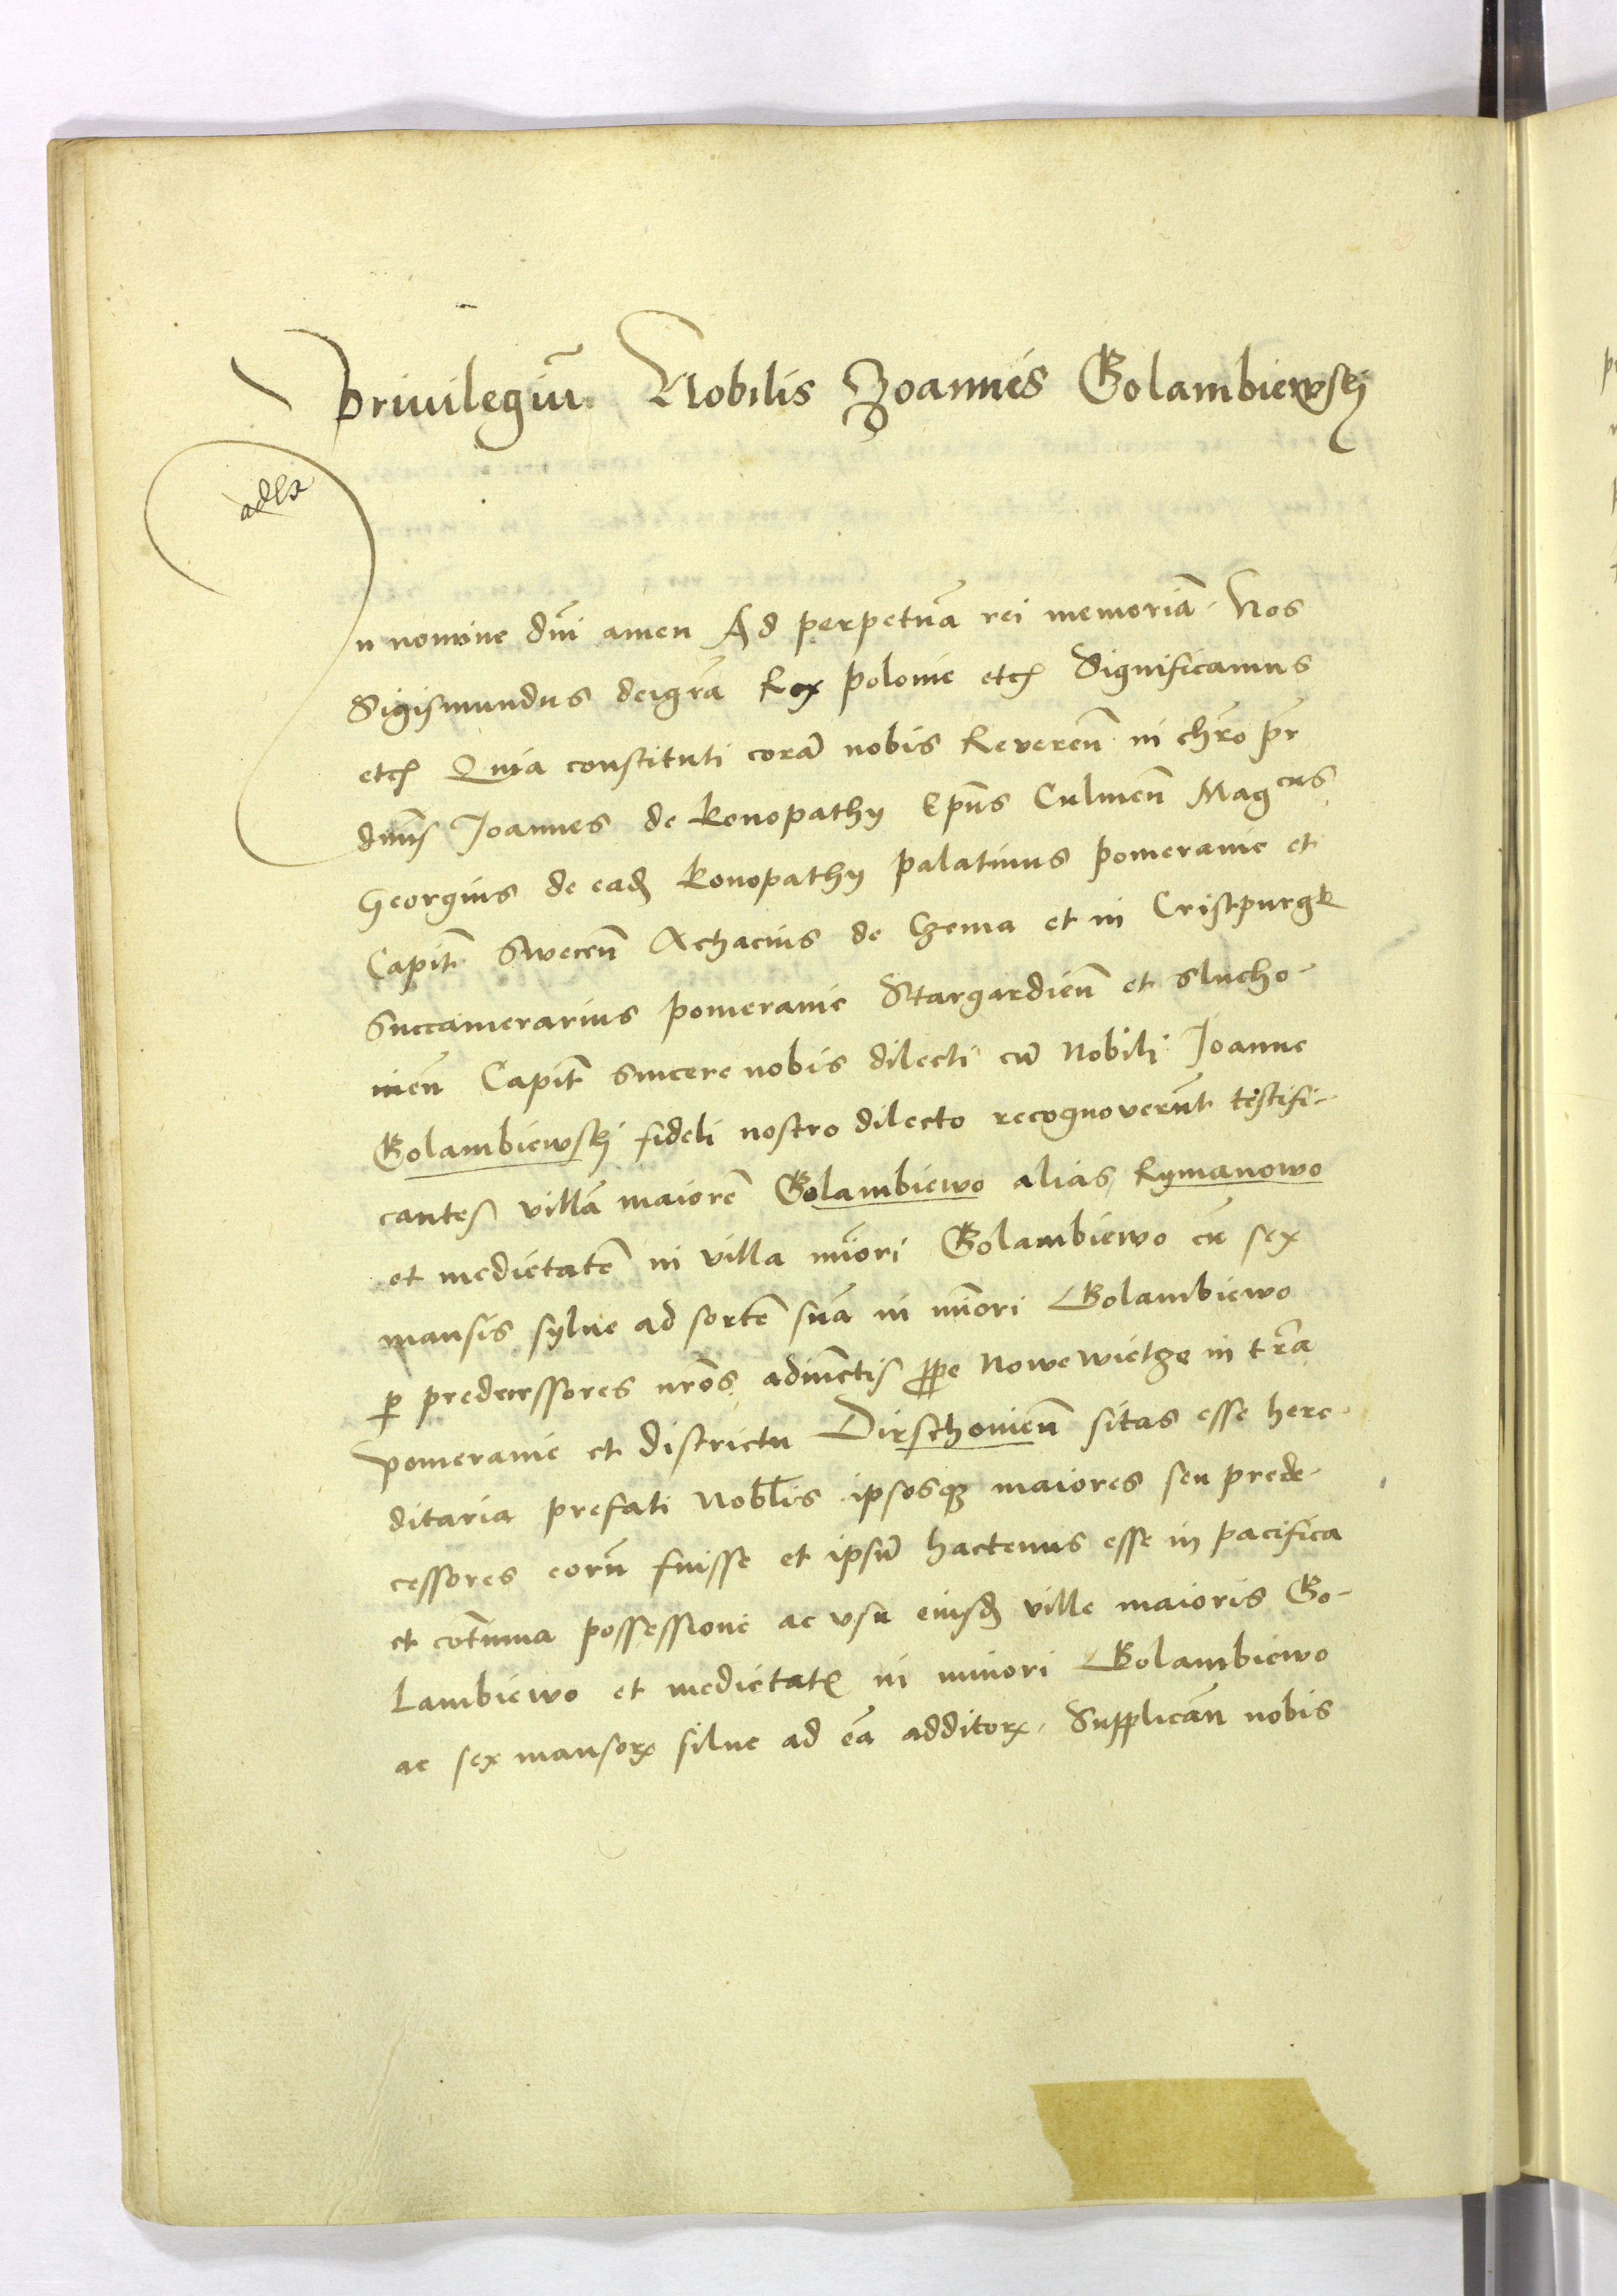 Priuilegiū Nobilis Joannes Golambiewskj
In nomine dnī amen Ad perpetuā rei memoriā. Nos
Sigismundus dei grā Rex polonie etc Significamus
etc Quia constituti corā nobis Reveren̄ in chrō pr̄
dnūs Joannes de konopathy Epūs Culmen̄ Magcus
Georgius de eadē konopathy palatinus pomeranie et
Capit̄ Swecen̄ Achacius de Czema et in Cristpurgk
Succamerarius pomeranie Stargardien̄ et slucho-
wien̄ Capit̄ sincere nobis dilecti cū Nobili Joanne
Golambiewskj fideli nostro dilecto recognoverūt testifi-
cantes villā maiorē Golambiewo alias Rymanowo
et medietatē in villa mīori Golambiewo cū sex
mansis sylue ad sortē suā in mīori Golambiewo
ꝑ predecessores nrōs adiūctis ꝓpe Nowewietze in trā
pomeranie et districtu Dirschouien̄ sitas esse here-
ditaria prefati Noblīs ipsosqꝫ maiores seu prede-
cessores eorū fuisse et ipsū hactenus esse in pacifica
et cōtinua possessione ac vsu eiusdē ville maioris Go-
lambiewo et medietatꝭ in minori Golambiewo
ac sex mansorꝝ silue ad eā additorꝝ. Supplicān nobis